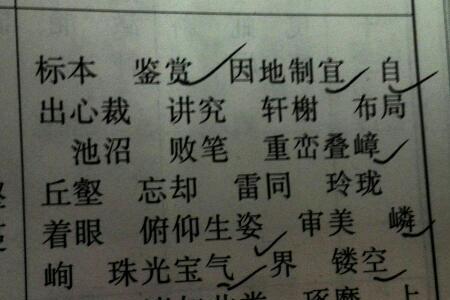 标本 鉴赏 因地制宜 自
出心裁 讲究 轩榭 布局
池沼 败笔 重峦叠嶂
丘壑 忘却 雷同 玲珑
着眼 俯仰生姿 审美 嶙
峋 珠光宝气 界 镂空
琢磨